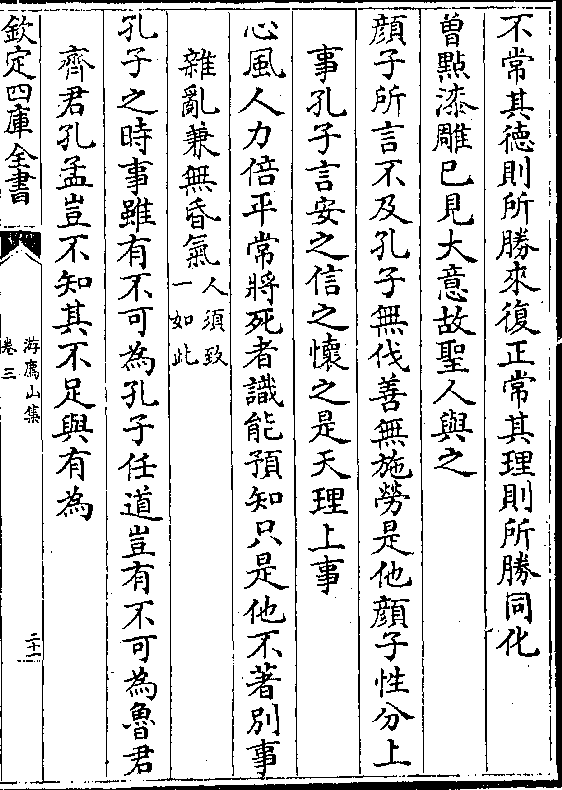 不常其德則所勝來復正常其理則所勝同化
曽㸃漆雕已見大意故聖人與之
顔子所言不及孔子無伐善無施勞是他顔子性分上
事孔子言安之信之懷之是天理上事
心風人力倍平常將死者識能預知只是他不著别事
雜亂兼無昏氣人須致
一如此
孔子之時事雖有不可為孔子任道豈有不可為魯君
齊君孔孟豈不知其不足與有為
欽定四庫全書
游廌山集
卷三
二十一